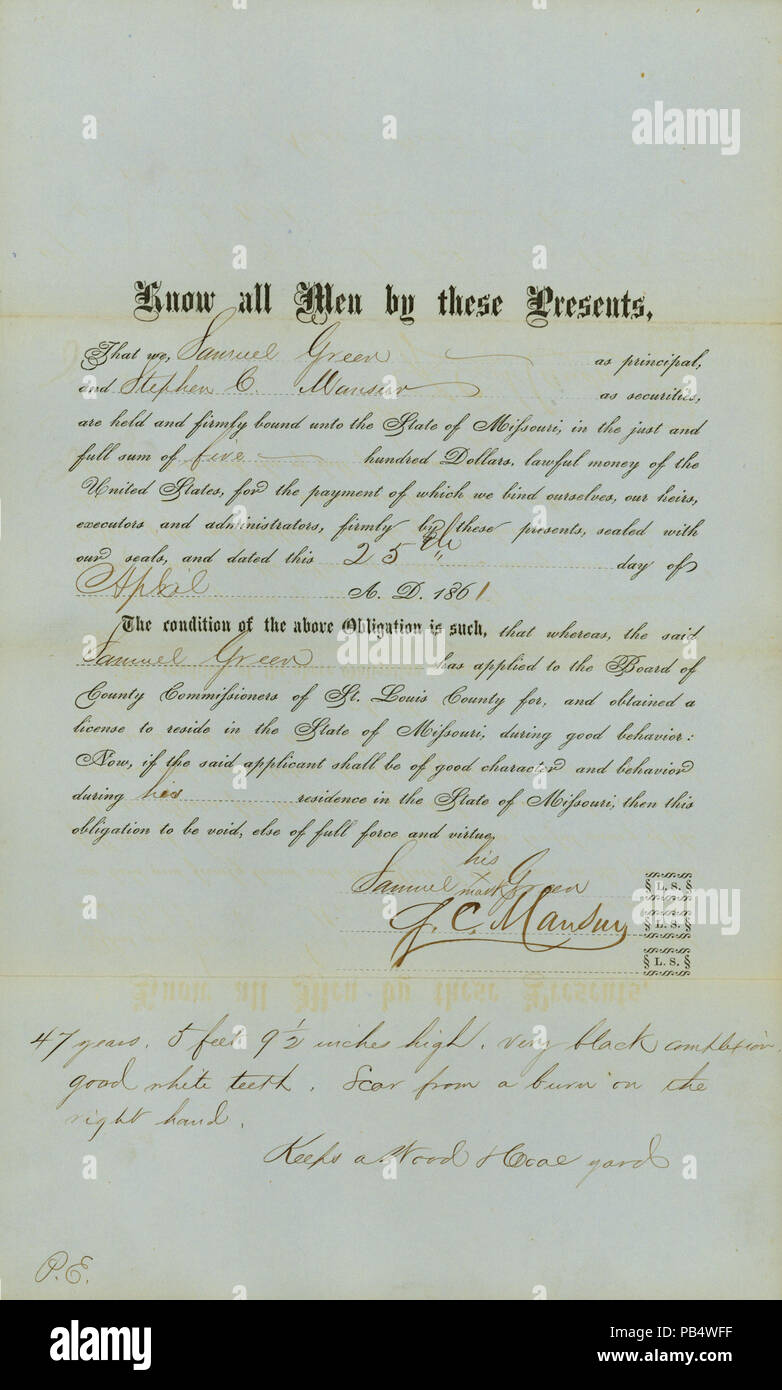 Know all Men by these Presents,
That we, Samuel Green as principal,
and Stephen C. Mansur as securities,
are held and firmly bound unto the State of Missouri, in the just and
full sum of five hundred Dollars, lawful money of the
United States, for the payment of which we bind ourselves, our heirs,
executors and administrators, firmly by these presents, sealed with
our seals, and dated this 25th day of
April A. D. 1861
The condition of the above Obligation is such, that whereas, the said
Samuel Green has applied to the Board of
County Commissioners of St. Louis County for, and obtained a
license to reside in the State of Missouri, during good behavior:
Now, if the said applicant shall be of good character and behavior
during his residence in the State of Missouri, then this
obligation to be void, else of full force and virtue.
his
Samuel x Green L. S.
mark
S. C. Mansur L. S.
L. S.
47 years. 5 feet 9 1/2 inches high. very black complexion.
good white teeth. Scar from a burn on the
right hand.
Keeps a Wood & Coal yard
P.E.
alamy
Image ID: PB4WFF
www.alamy.com